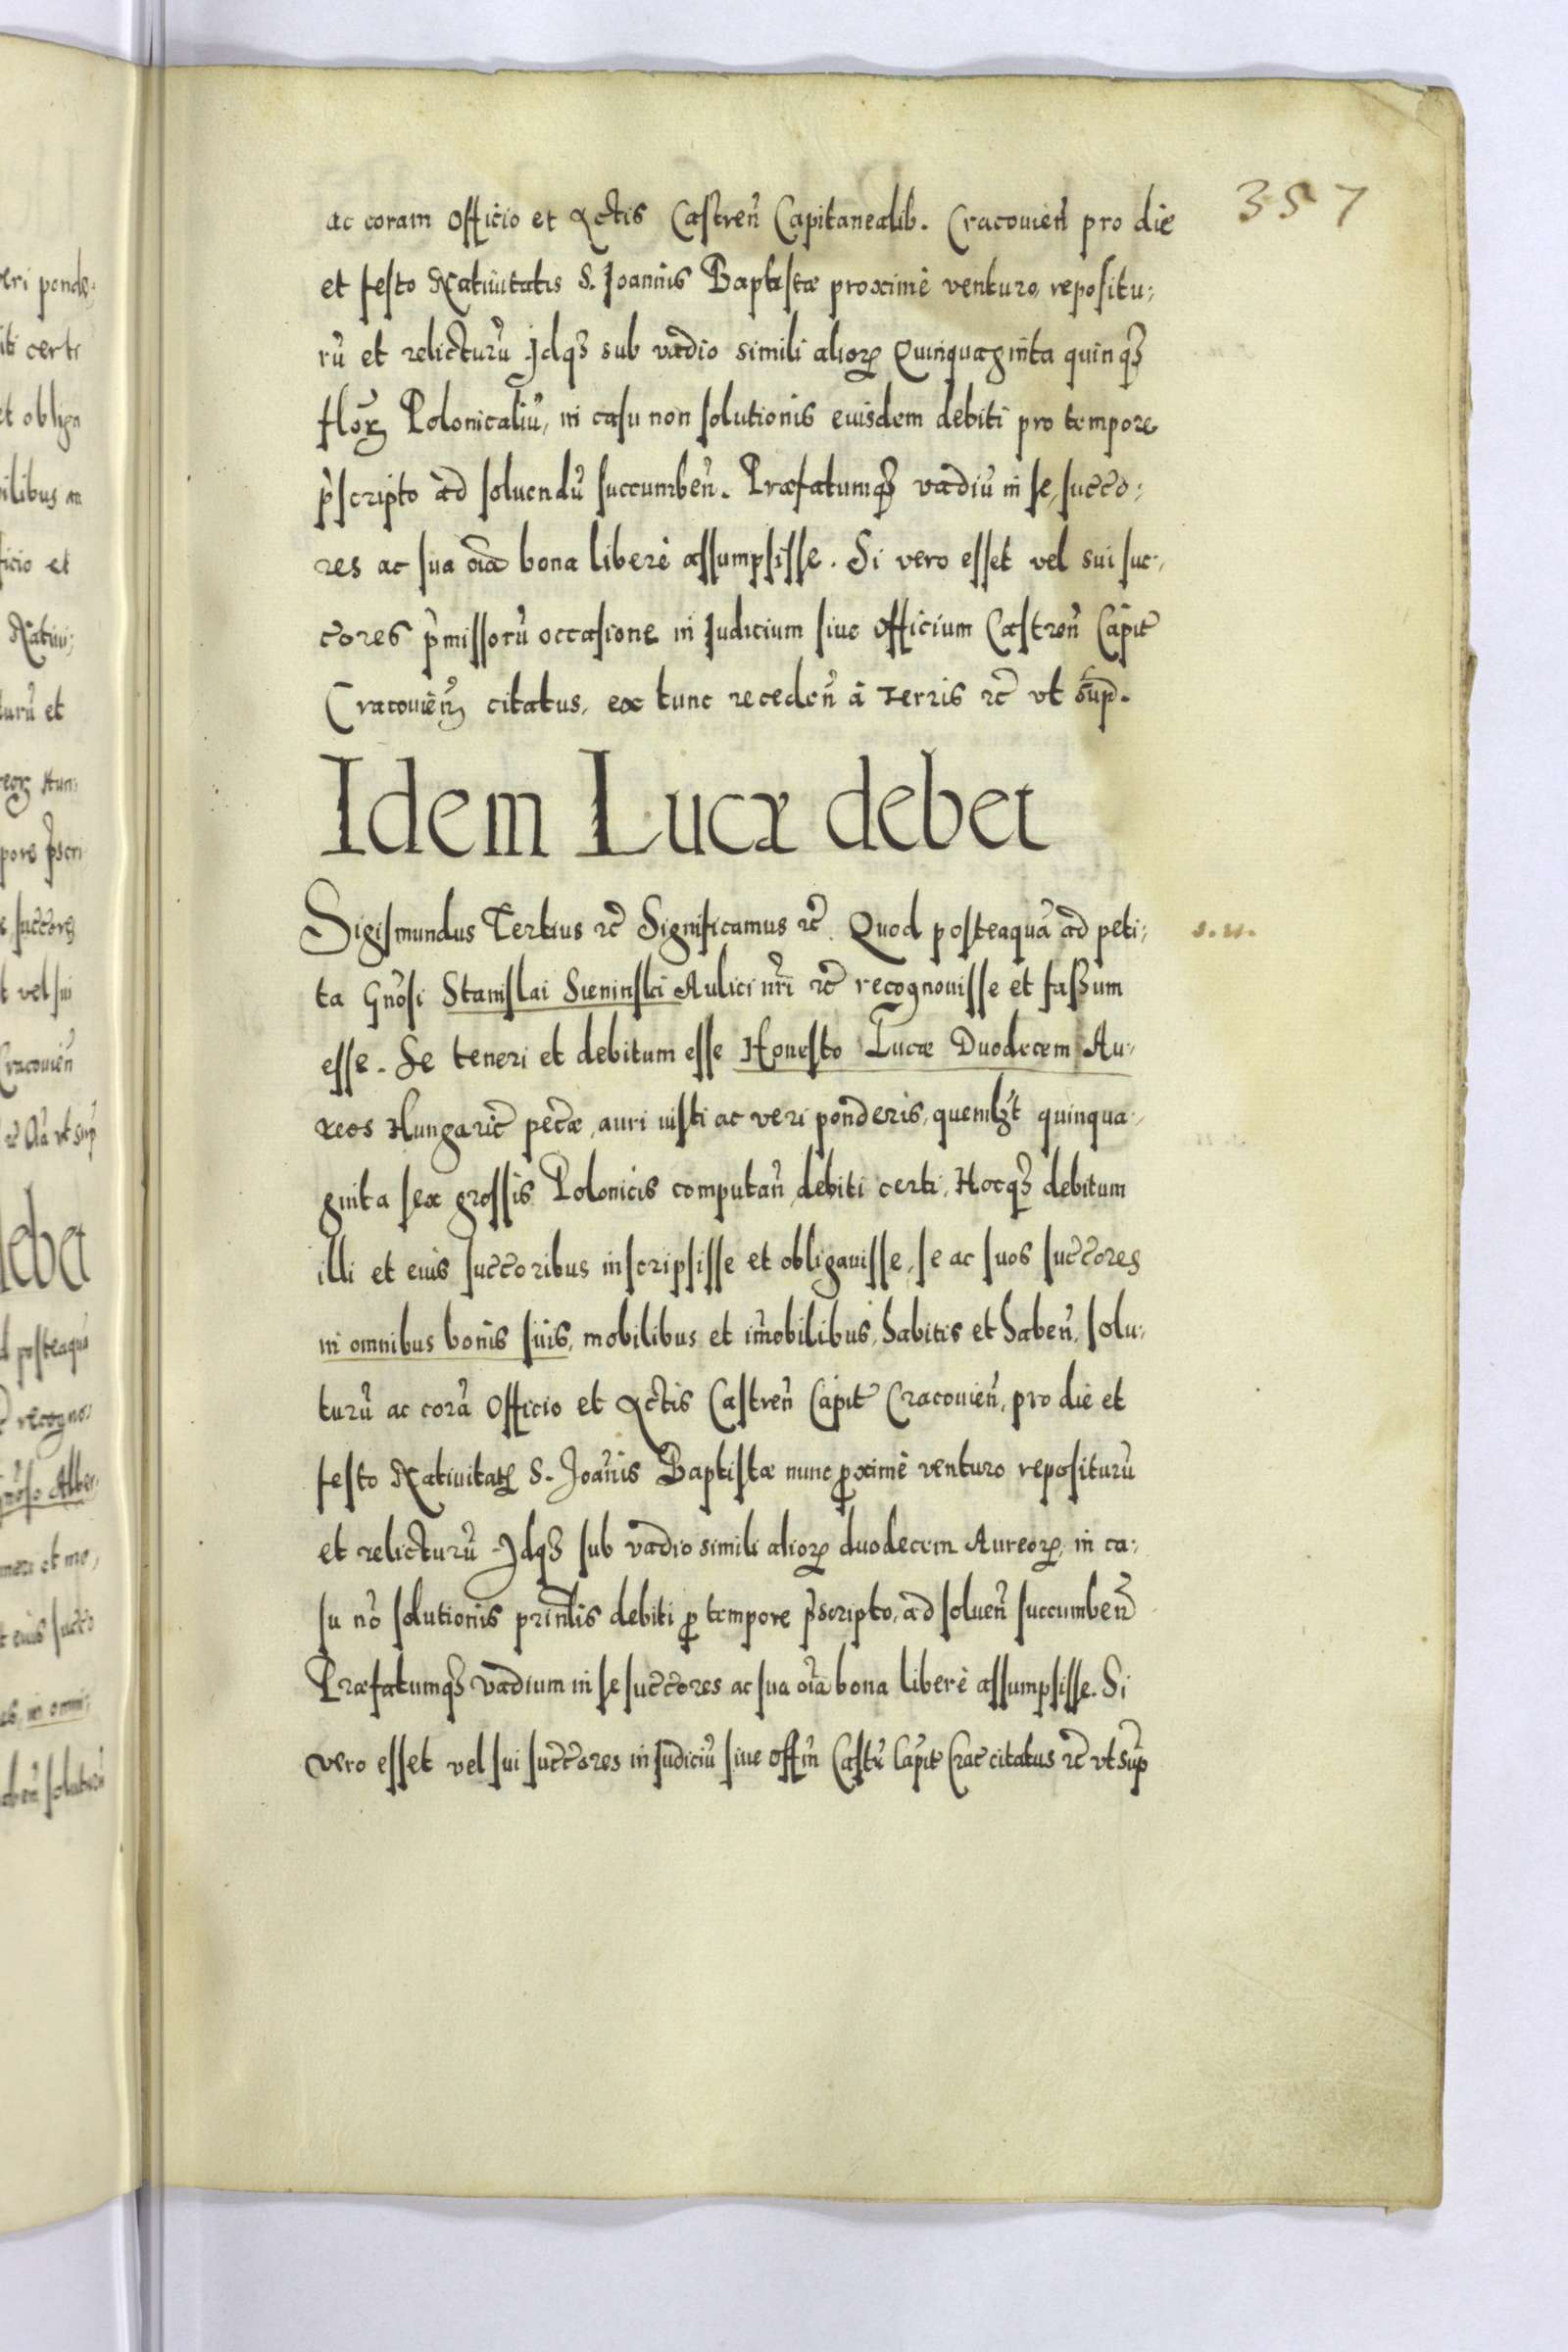 357
ac coram Officio et Actis Castren̄ Capitanealib. Cracovien̄ pro die
et festo Natiuitatis S. Joannis Baptistæ proximè venturo, repositu:
rū et relicturū Idq₃ sub vadio simili alioꝝ Quinquaginta quinq₃
florꝝ Polonicaliū, in casu non solutionis eiusdem debiti pro tempore
p̄scripto ad soluendū succumben̄. Præfatumq₃ vadiū in se, succō:
res ac sua oīa bona liberè assumpsisse. Si vero esset vel sui suc:
cōres p̄missorū occasione in Judicium siue Officium Castren̄ Capit̄
Cracovien̄ citatus, ex tunc receden̄ à terris etc̄ vt sup̄.
Idem Lucæ debet
Sigismundus Tertius etc̄ Significamus etc̄. Quod posteaquā ad peti:
s. n.
ta Gn̄osi Stanislai Sieninski Aulici nr̄i etc̄ recognouisse et fassum
esse. Se teneri et debitum esse Honesto Lucæ Duodecem Au:
reos Hungaric̄ pec̄æ, auri iusti ac veri ponderis, quemlꝫt quinqua:
ginta sex grossis Polonicis computan̄ debiti certi, Hocq₃ debitum
illi et eius succ̄oribus inscripsisse et obligauisse, se ac suos succ̄ores
in omnibus bonis suis, mobilibus et im̄obilibus, habitis et haben̄, solu:
turū ac corā Officio et Actis Castren̄ Capit̄ Cracovien̄, pro die et
festo Natiuitatꝭ S. Joān̄is Baptistæ nunc ꝓximè venturo repositurū
et relicturū Idq₃ sub vadio simili alioꝝ duodecem Aureoꝝ, in ca:
su nō solutionis prin̄lis debiti ꝓ tempore p̄scripto, ad soluen̄ succumben̄
Præfatumq₃ vadium in se succ̄ores ac sua oīa bona liberè assumpsisse. Si
vero esset vel sui succ̄ores in Judiciū siue off̄m Castr̄ Capit̄ Crac̄ citatus etc̄ vt sup̄